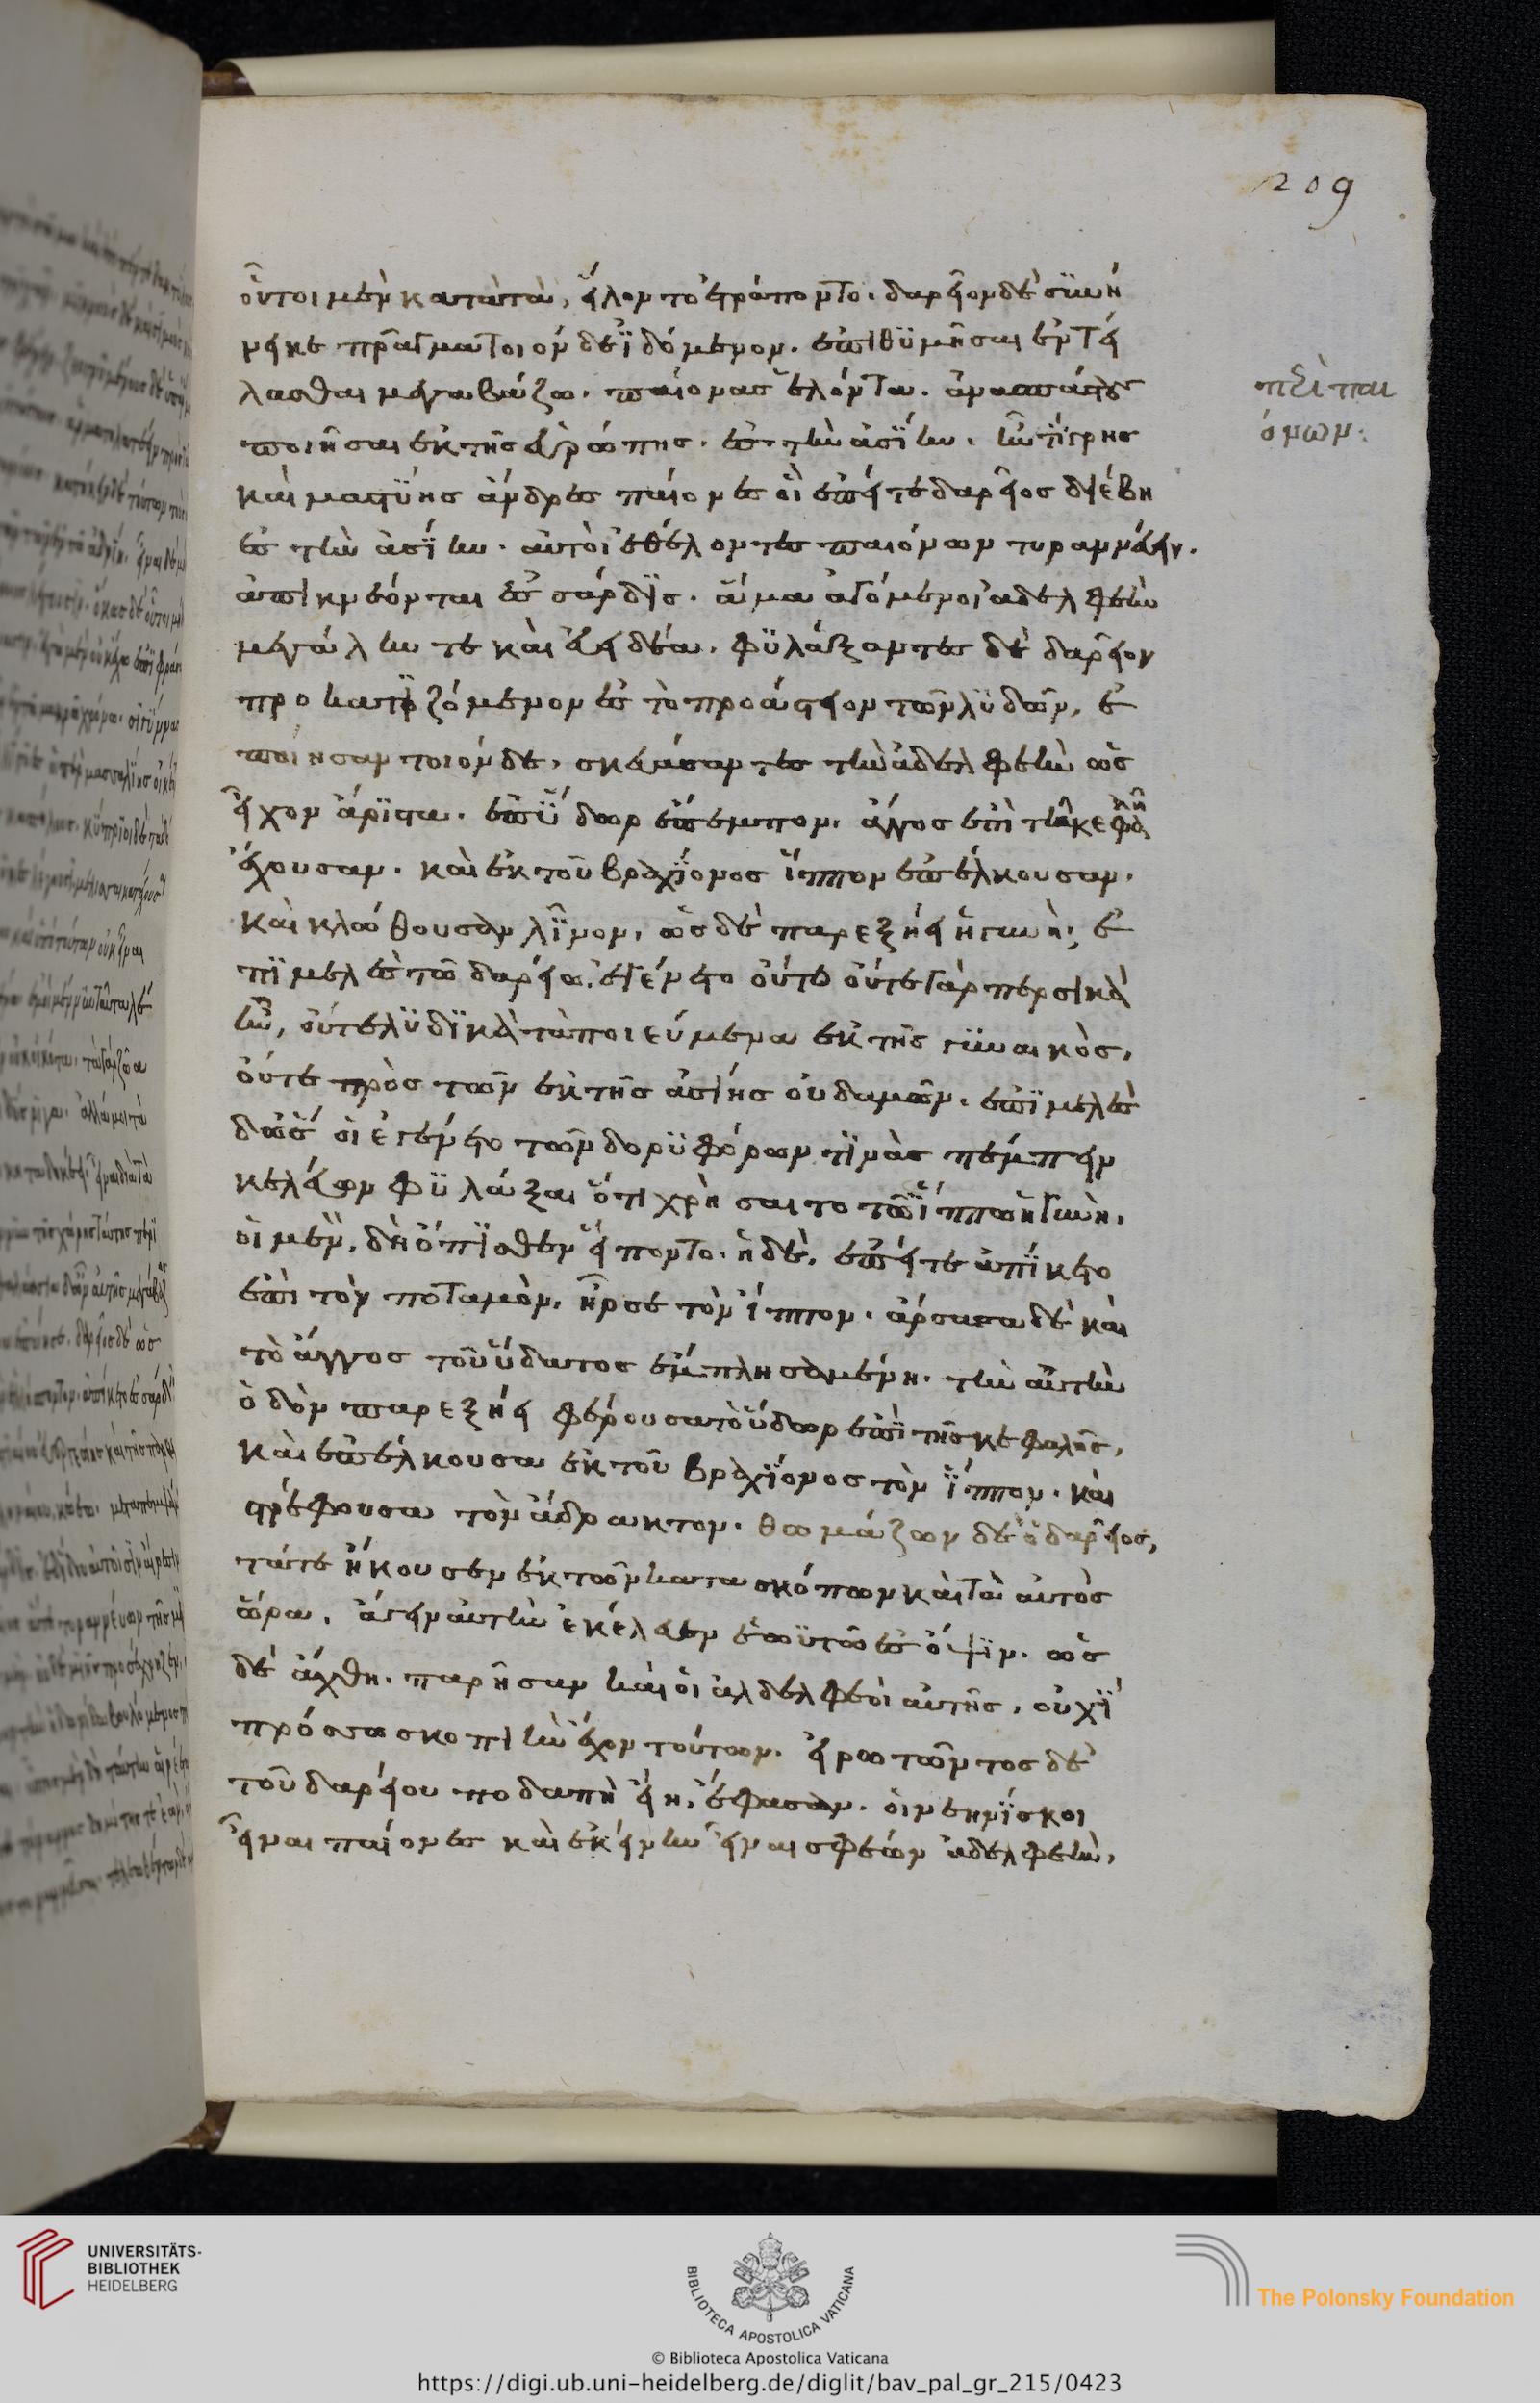 209
οὗτοι μὲν κατὰ τὰ, εἵλοντο ἐτράποντο. δαρεῖον δὲ συνή
νεικε πρᾶγμα τοιόνδε ἰδόμενον. ἐπιθυμῆσαι ἐντεί
λασθαι μεγαβάζω. παίονας ἑλόντα. ἀνασπάστους
ποιῆσαι ἐκ τῆς εὐρώπης. ἐς τὴν ἀσίην. ἦν πίγρης
καὶ μαστύης ἄνδρες παίονες οἳ ἐπείτε δαρεῖος διέβη
ἐς τὴν ἀσίην. αὐτοὶ ἐθέλοντες παιόνων τυραννεύειν.
ἀπικνέονται ἐς σάρδις. ἅμα ἀγόμενοι ἀδελφεὴν
μεγάλην τε καὶ εὐειδέα. φυλάξαντες δὲ δαρεῖον
προκατιζόμενον ἐς τὸ προάστειον τῶν λυδῶν, ἐ
ποίησαν τοιόνδε. σκευάσαντες τὴν ἀδελφεὴν ὡς
εἶχον ἄριστα. ἐπ' ὕδωρ ἔπεμπον. ἄγγος ἐπὶ τῆ κεφαλῆ
ἔχουσαν. καὶ ἐκ τοῦ βραχίονος ἵππον ἐπέλκουσαν.
καὶ κλώθουσαν λῖνον. ὡς δὲ παρεξήει ἡ γυνὴ, ἐ
πιμελὲς τῶ δαρείω ἐγένετο οὔτε οὔτε γὰρ περσικὰ
ἦν, οὔτε λυδικὰ τὰ ποιεύμενα ἐκ τῆς γυναικὸς.
οὔτε πρὸς τῶν ἐκ τῆς ἀσίης οὐδαμῶν. ἐπιμελὲς
δὲ ὥς οἱ ἐγένετο τῶν δορυφόρων τινὰς πέμπει
κελεύων φυλάξαι ὅτι χρήσαιτο τῶ ἵππω ἡ γυνὴ.
οἱ μὲν, δὴ ὄπισθεν εἵποντο. ἡ δὲ, ἐπείτε ἀπίκετο
ἐπὶ τὸν ποταμὸν. ἦρσε τὸν ἵππον. ἄρσασα δὲ καὶ
τὸ ἄγγος τοῦ ὕδατος ἐμπλησαμένη. τὴν αὐτὴν
ὁδὸν παρεξήει φέρουσα τὸ ὕδωρ ἐπὶ τῆς κεφαλῆς,
καὶ ἐπέλκουσα ἐκ τοῦ βραχίονος τὸν ἵππον. καὶ
στρέφουσα τὸν ἄδρακτον. θωμάζων δὲ ὁ δαρεῖος,
τά τε ἤκουσεν ἐκ τῶν κατασκόπων καὶ τὰ αὐτὸς
ὥρα. ἄγειν αὐτὴν ἐκέλευεν ἑωυτῶ ἐς ὄψιν. ὡς
δὲ ἄχθη. παρῆσαν καὶ οἱ ἀδελφεοὶ αὐτῆς, οὐχὶ
πρόσω σκοπιὴν ἔχον τούτων. εἰρωτῶντος δὲ
τοῦ δαρείου ποδαπὴ εἴη. ἔφασαν. οἱ νεηνίσκοι
εἶναι παίονες καὶ ἐκείνην εἶναι σφέων ἀδελφεὴν,
περὶ παι
όνων:
UNIVERSITÄTS-
BIBLIOTHEK
HEIDELBERG
BIBLIOTECA APOSTOLICA VATICANA
The Polonsky Foundation
© Biblioteca Apostolica Vaticana
https://digi.ub.uni-heidelberg.de/diglit/bav_pal_gr_215/0423